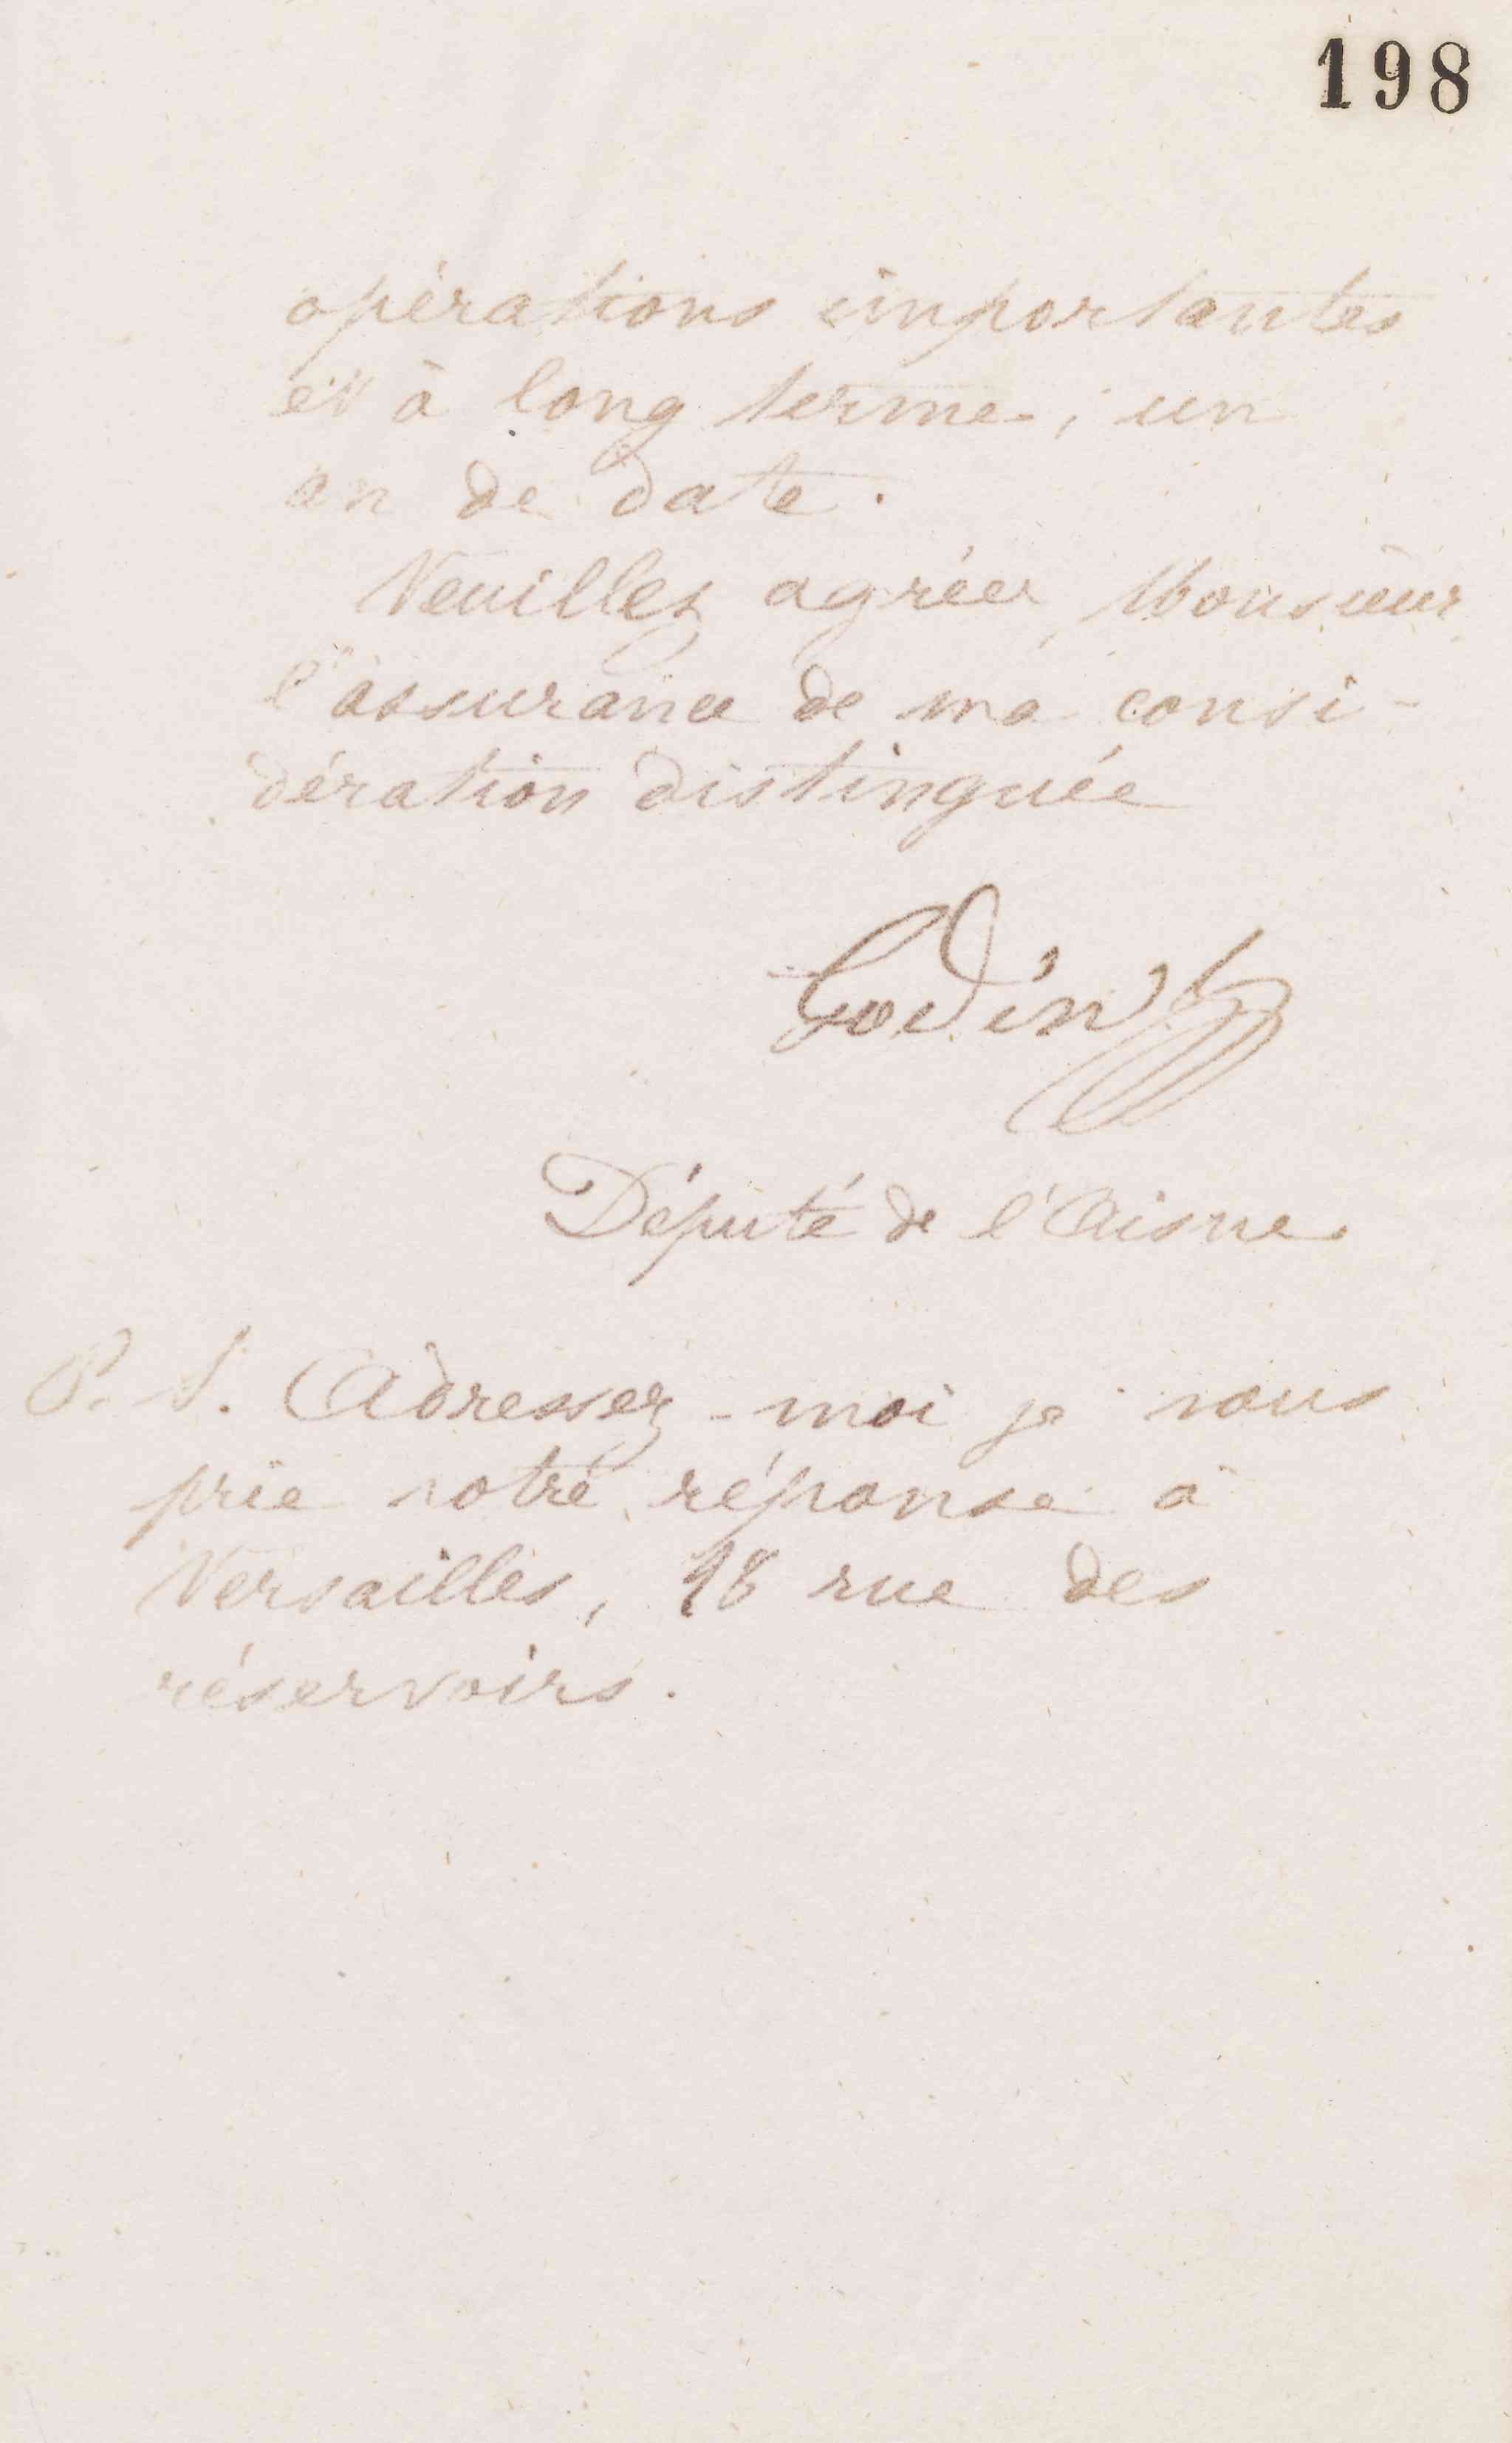 198
opérations importantes
et à long terme ; un
an de date.
Veuillez agréer, Monsieur
l'assurance de ma consi-
dération distinguée
Godin
Député de l'Aisne
P. S. Adressez-moi je vous
prie votre réponse à
Versailles, 28 rue des
réservoirs.